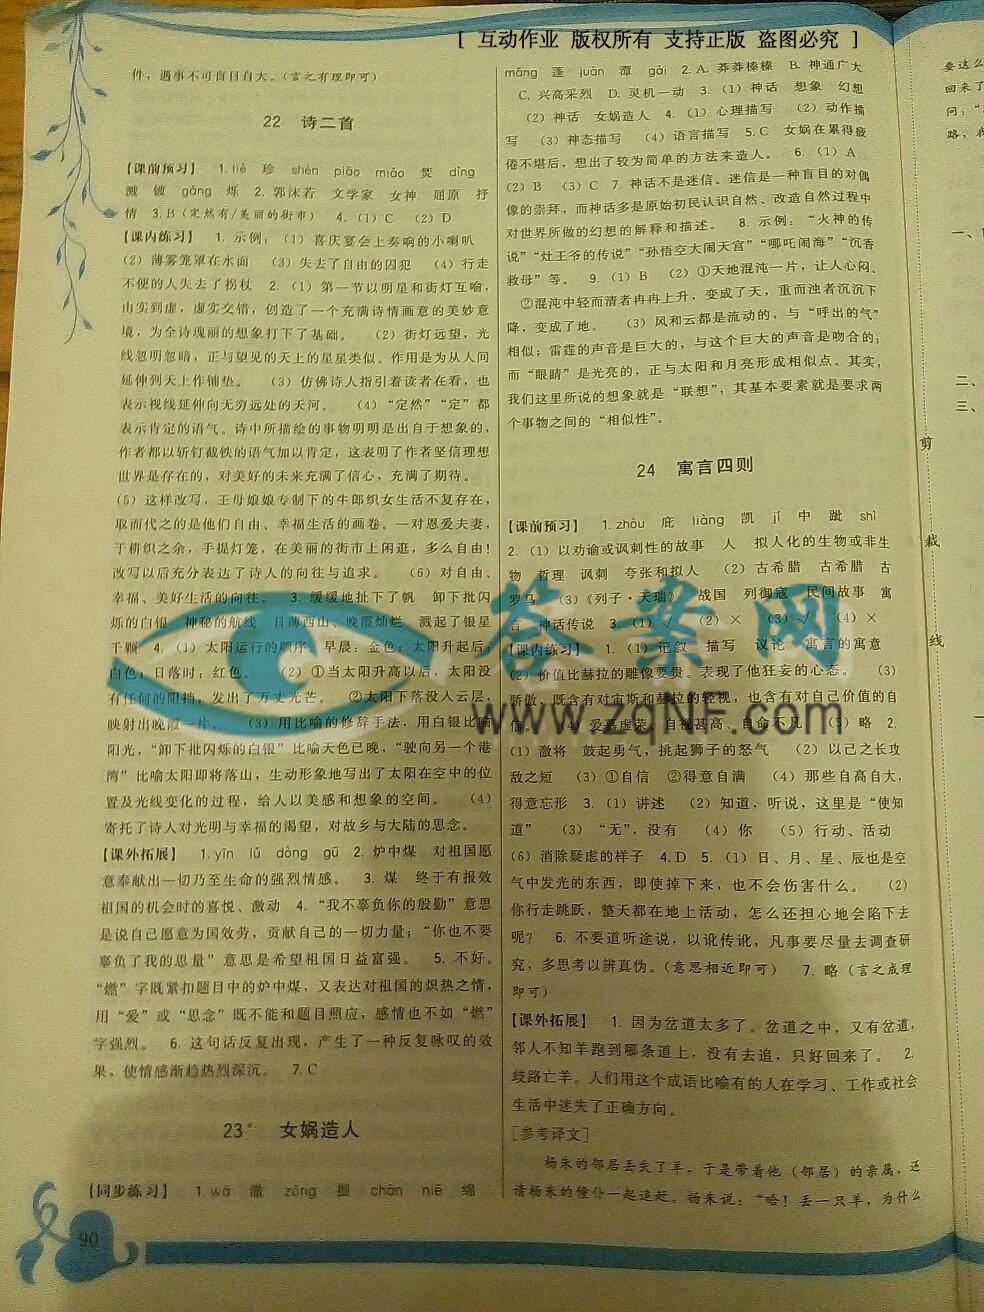 [ 互动作业 版权所有 支持正版 盗图必究 ]
件，遇事不可盲目自大。（言之有理即可）
22 诗二首
【课前预习】 1. liè 珍 shèn piāo miǎo 焚 dìng
溅 镀 gǎng 烁 2. 郭沫若 文学家 女神 屈原 抒
情 3. B（定然有/美丽的街市） 4. （1）C （2）D
【课内练习】 1. 示例：（1）喜庆宴会上奏响的小喇叭
（2）薄雾笼罩在水面 （3）失去了自由的囚犯 （4）行走
不便的人失去了拐杖 2. （1）第一节以明星和街灯互喻，
由实到虚，虚实交错，创造了一个充满诗情画意的美妙意
境，为全诗瑰丽的想象打下了基础。 （2）街灯远望，光
线忽明忽暗，正与望见的天上的星星类似。作用是为从人间
延伸到天上作铺垫。 （3）仿佛诗人指引着读者在看，也
表示视线延伸向无穷远处的天河。 （4）“定然”“定”都
表示肯定的语气。诗中所描绘的事物明明是出自于想象的，
作者都以斩钉截铁的语气加以肯定，这表明了作者坚信理想
世界是存在的，对美好的未来充满了信心，充满了期待。
（5）这样改写，王母娘娘专制下的牛郎织女生活不复存在，
取而代之的是他们自由、幸福生活的画卷。一对恩爱夫妻，
于耕织之余，手提灯笼，在美丽的街市上闲逛，多么自由！
改写以后充分表达了诗人的向往与追求。 （6）对自由、
幸福、美好生活的向往。 3. 缓缓地扯下了帆 卸下批闪
烁的白银 神秘的航线 日薄西山、晚霞灿烂 溅起了银星
千颗 4. （1）太阳运行的顺序。早晨：金色；太阳升起后：
白色；日落时：红色。 （2）①当太阳升高以后，太阳没
有任何的阻挡，发出了万丈光芒。 ②太阳下落没入云层，
映射出晚霞一片。 （3）用比喻的修辞手法，用白银比喻
阳光，“卸下批闪烁的白银”比喻天色已晚，“驶向另一个港
湾”比喻太阳即将落山，生动形象地写出了太阳在空中的位
置及光线变化的过程，给人以美感和想象的空间。 （4）
寄托了诗人对光明与幸福的渴望，对故乡与大陆的思念。
【课外拓展】 1. yīn lǔ dòng gū 2. 炉中煤 对祖国愿
意奉献出一切乃至生命的强烈情感。 3. 煤 终于有报效
祖国的机会时的喜悦、激动 4. “我不辜负你的殷勤”意思
是说自己愿意为国效劳，贡献自己的一切力量；“你也不要
辜负了我的思量”意思是希望祖国日益富强。 5. 不好。
“燃”字既紧扣题目中的炉中煤，又表达对祖国的炽热之情，
用“爱”或“思念”既不能和题目照应，感情也不如“燃”
字强烈。 6. 这句话反复出现，产生了一种反复咏叹的效
果，使情感渐趋热烈深沉。 7. C
23* 女娲造人
【同步练习】 1. wā 澈 zēng 掘 chān niē 绵
90
mǎng 蓬 juàn 潭 gài 2. A. 莽莽榛榛 B. 神通广大
C. 兴高采烈 D. 灵机一动 3. （1）神话 想象 幻想
（2）神话 女娲造人 4. （1）心理描写 （2）动作描
写 （3）神态描写 （4）语言描写 5. C 女娲在累得疲
倦不堪后，想出了较为简单的方法来造人。 6. （1）A
（2）B （3）C 7. 神话不是迷信。迷信是一种盲目的对偶
像的崇拜，而神话多是原始初民认识自然、改造自然过程中
对世界所做的幻想的解释和描述。 8. 示例：“火神的传
说”“灶王爷的传说”“孙悟空大闹天宫”“哪吒闹海”“沉香
救母”等。 9. （1）B （2）①天地混沌一片，让人心闷。
②混沌中轻而清者冉冉上升，变成了天，重而浊者沉沉下
降，变成了地。 （3）风和云都是流动的，与“呼出的气”
相似；雷霆的声音是巨大的，与这个巨大的声音是吻合的；
而“眼睛”是光亮的，正与太阳和月亮形成相似点。其实，
我们这里所说的想象就是“联想”，其基本要素就是要求两
个事物之间的“相似性”。
24 寓言四则
【课前预习】 1. zhòu 庇 liàng 凯 jí 中 踮 shì
2. （1）以劝谕或讽刺性的故事 人 拟人化的生物或非生
物 哲理 讽刺 夸张和拟人 （2）古希腊 古希腊 古
罗马 （3）《列子·天瑞》 战国 列御寇 民间故事 寓
言 神话传说 3. （1）√ （2）× （3）√ （4）×
【课内练习】 1. （1）记叙 描写 议论 寓言的寓意
（2）价值比赫拉的雕像要贵。表现了他狂妄的心态。 （3）
骄傲，既含有对宙斯和赫拉的轻视，也含有对自己价值的自
信。 （4）爱慕虚荣、自视甚高、自命不凡 （5）略 2.
（1）激将 鼓起勇气，挑起狮子的怒气 （2）以己之长攻
敌之短 （3）①自信 ②得意自满 （4）那些自高自大，
得意忘形 3. （1）讲述 （2）知道，听说，这里是“使知
道” （3）“无”，没有 （4）你 （5）行动、活动
（6）消除疑虑的样子 4. D 5. （1）日、月、星、辰也是空
气中发光的东西，即使掉下来，也不会伤害什么。 （2）
你行走跳跃，整天都在地上活动，怎么还担心地会陷下去
呢？ 6. 不要道听途说，以讹传讹，凡事要尽量去调查研
究，多思考以辨真伪。（意思相近即可） 7. 略（言之成理
即可）
【课外拓展】 1. 因为岔道太多了。岔道之中，又有岔道，
邻人不知羊跑到哪条道上，没有去追，只好回来了。 2.
歧路亡羊。人们用这个成语比喻有的人在学习、工作或社会
生活中迷失了正确方向。
[参考译文]
杨朱的邻居丢失了羊，于是带着他（邻居）的亲属，还
请杨朱的僮仆一起追赶。杨朱说：“哈！丢一只羊，为什么
答案网
www.zqnf.com
要这么
回来了
问：“
路，我
一、
二、
三、
剪
裁
线